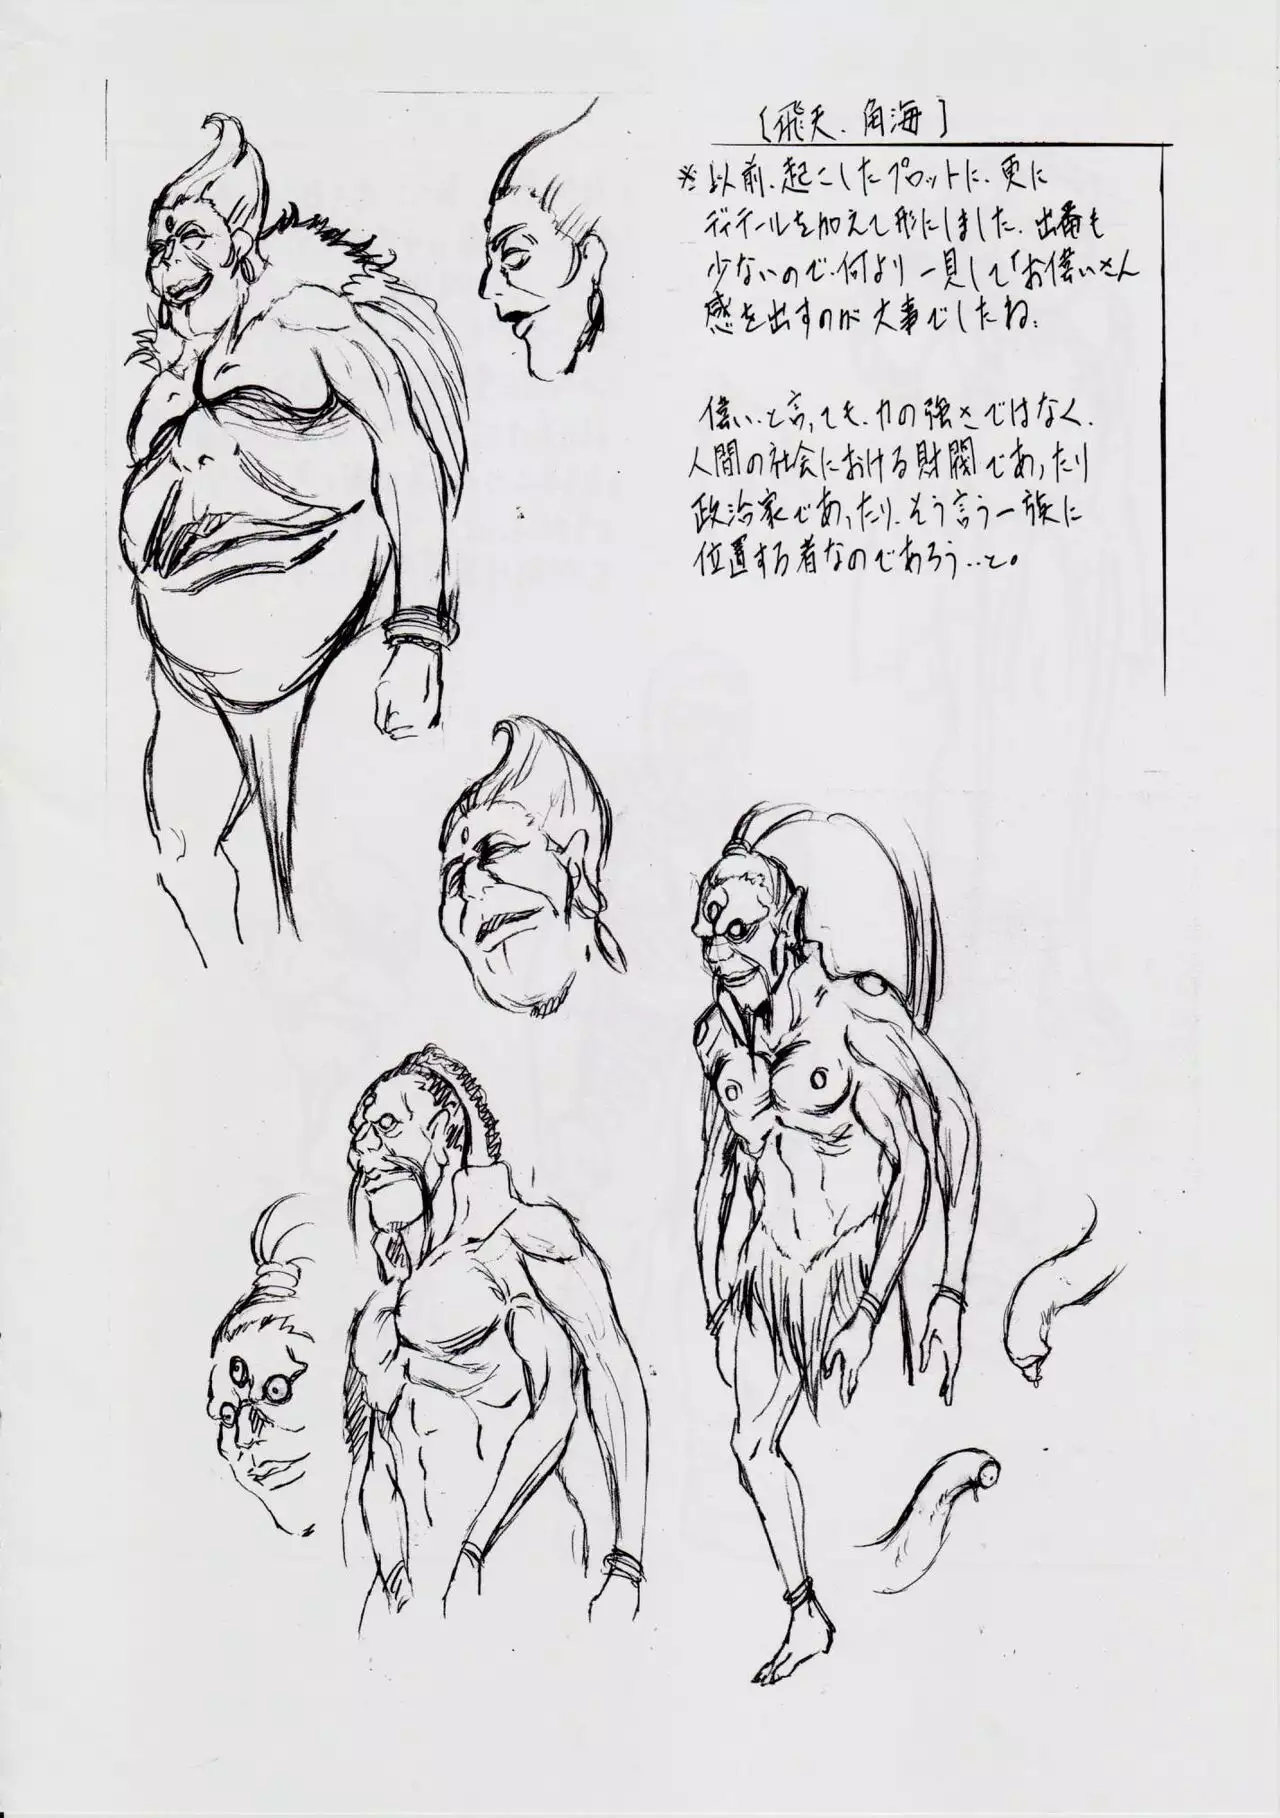 [飛天、角海]
※以前、起こしたプロットに、更に
ディテールを加えて形にしました、出番も
少ないので、何より一見して「お偉いさん
感を出すのが大事でしたね、
偉い、と言っても、力の強さではなく、
人間の社会における財閥であったり
政治家であったり、そう言う一族に
位置する者なのであろう…と。